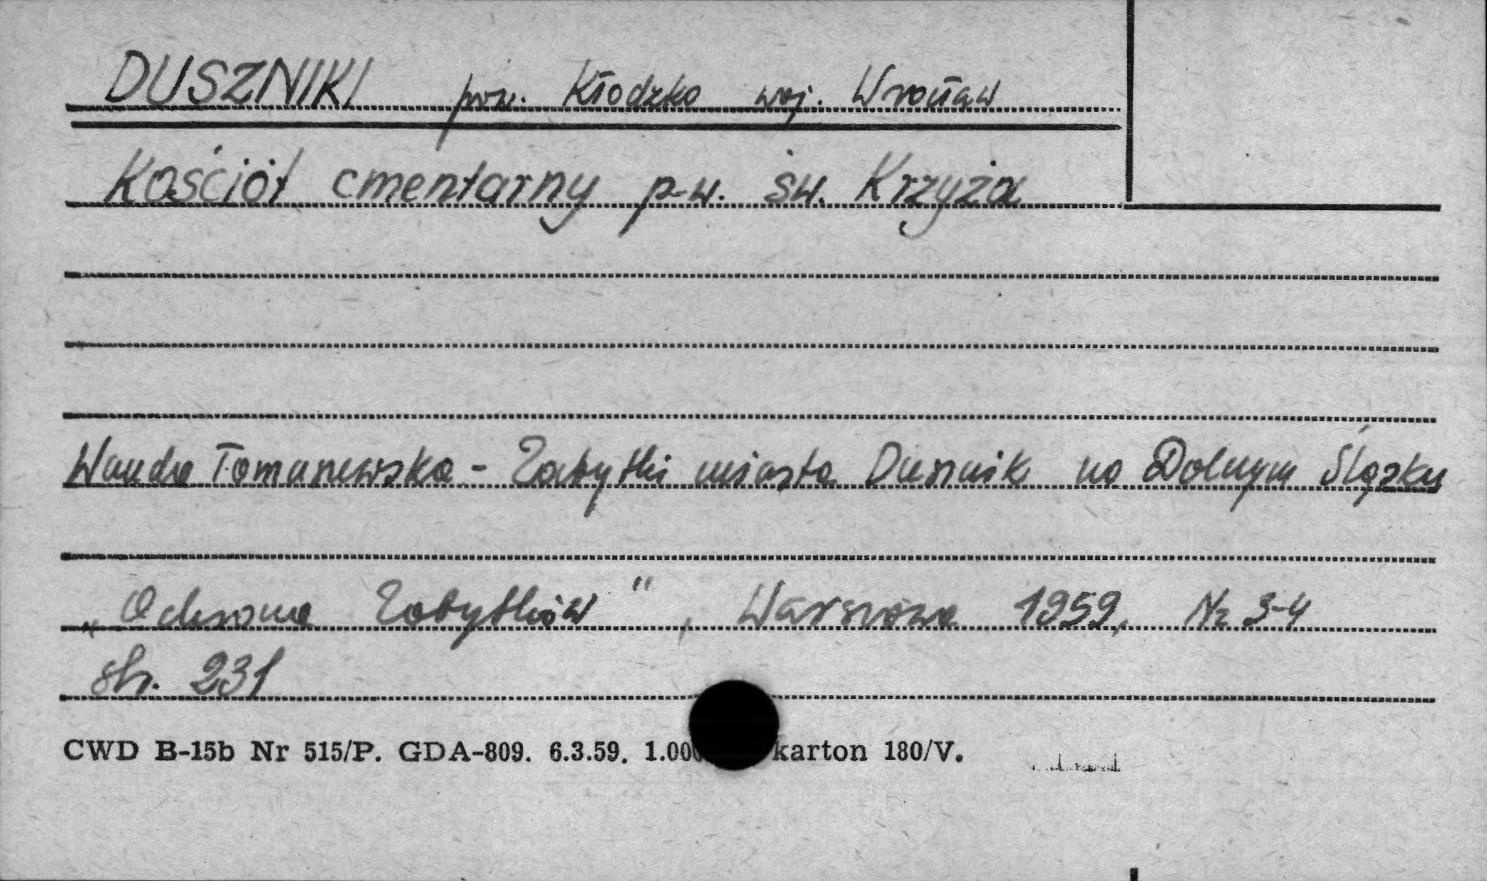 DUSZNIKI pow. Kłodzko woj. Wrocław
Kościół cmentarny p.w. św. Krzyża
Wanda Tomanewska - Zabytki miasta Dusznik na Dolnym Śląsku
„Ochrona Zabytków", Warszawa 1959, Nr 3-4
str. 231
CWD B-15b Nr 515/P. GDA-809. 6.3.59. karton 180/V.